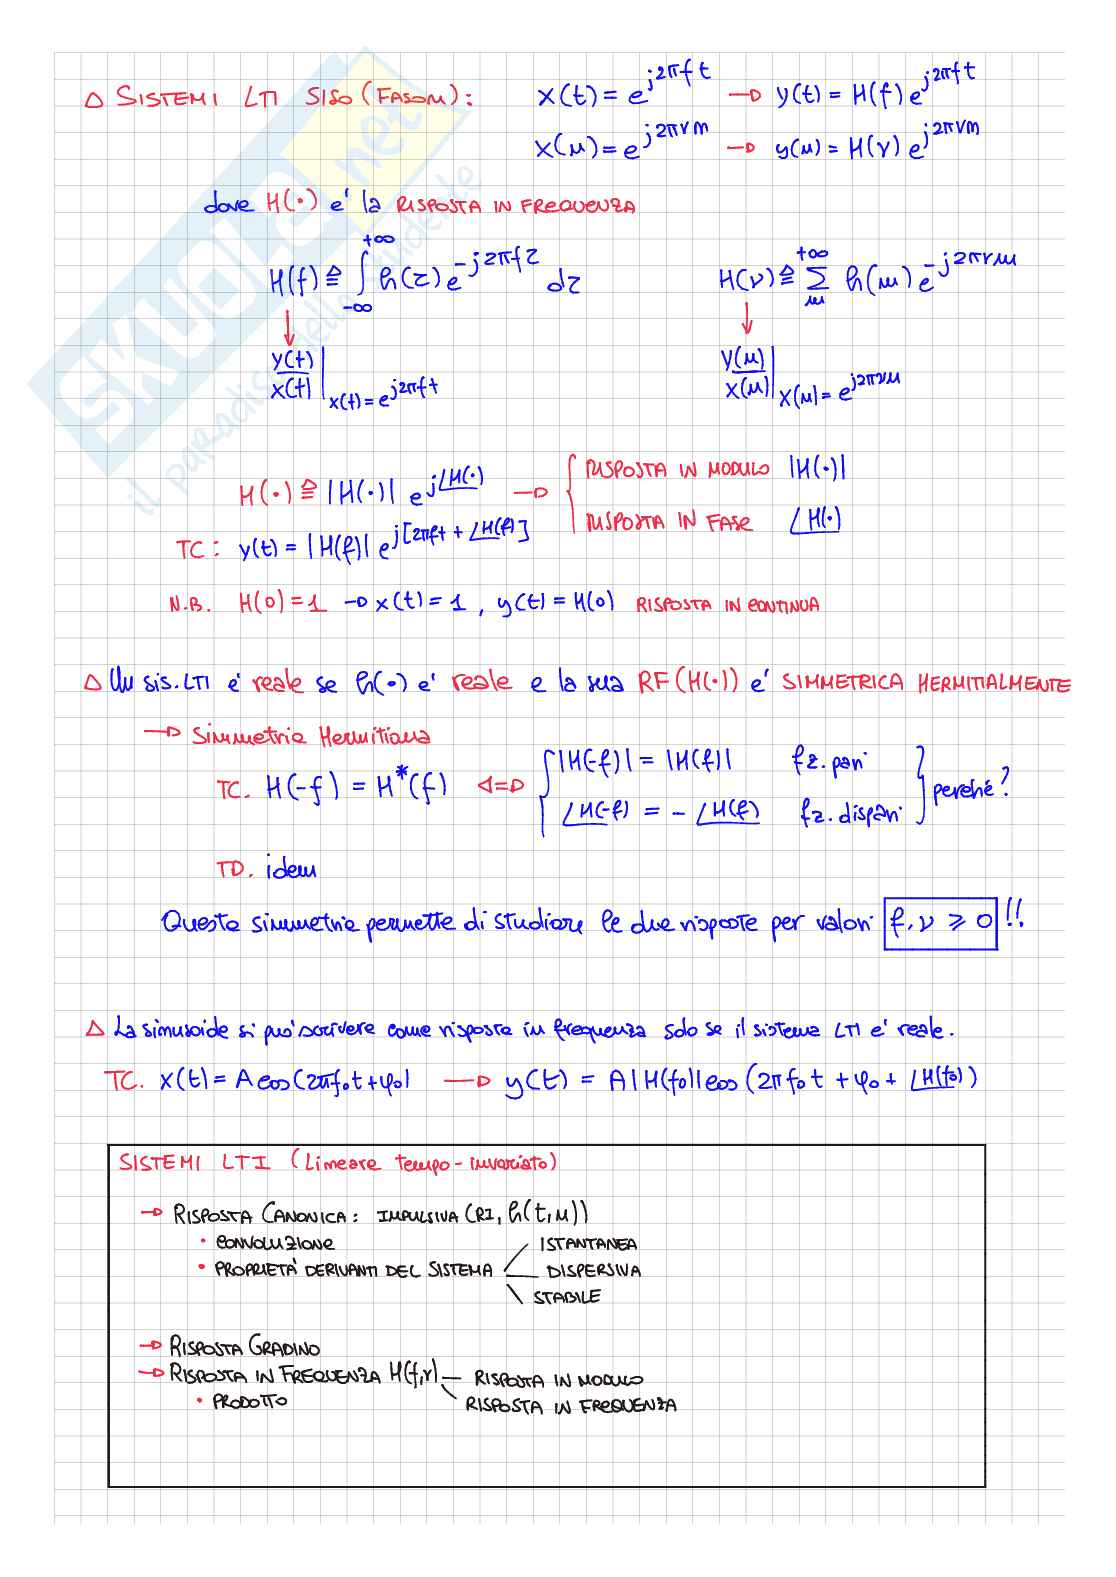 △ SISTEMI LTI SISO (FASORI): x(t) = e^{j2πft} → y(t) = H(f) e^{j2πft}
x(n) = e^{j2πνn} → y(n) = H(ν) e^{j2πνn}
dove H(·) e' la RISPOSTA IN FREQUENZA
H(f) ≙ ∫_{-∞}^{+∞} h(τ) e^{-j2πfτ} dτ H(ν) ≙ Σ_{n}^{+∞} h(n) e^{-j2πνn}
↓ ↓
y(t)/x(t) |_{x(t) = e^{j2πft}} y(n)/x(n) |_{x(n) = e^{j2πνn}}
H(·) ≙ |H(·)| e^{j∠H(·)} → { RISPOSTA IN MODULO |H(·)|
RISPOSTA IN FASE ∠H(·)
TC: y(t) = |H(f)| e^{j[2πft + ∠H(f)]}
N.B. H(0) = 1 → x(t) = 1, y(t) = H(0) RISPOSTA IN CONTINUA
△ Un sis. LTI e' reale se h(·) e' reale e la sua RF (H(·)) e' SIMMETRICA HERMITIALMENTE
→ Simmetria Hermitiana
TC. H(-f) = H*(f) ⇔ { |H(-f)| = |H(f)| fz. pari } perché?
∠H(-f) = - ∠H(f) fz. dispari
TD. idem
Questa simmetria permette di studiare le due risposte per valori f, ν ⩾ 0 !!
△ La sinusoide si puo' scrivere come risposta in frequenza solo se il sistema LTI e' reale.
TC. x(t) = A cos(2πf₀t + φ₀) → y(t) = A|H(f₀)| cos(2πf₀t + φ₀ + ∠H(f₀))
SISTEMI LTI (Lineare tempo-invariato)
→ RISPOSTA CANONICA: IMPULSIVA (RI, h(t,n))
• CONVOLUZIONE ISTANTANEA
• PROPRIETA' DERIVANTI DEL SISTEMA DISPERSIVA
STABILE
→ RISPOSTA GRADINO
→ RISPOSTA IN FREQUENZA H(f,ν) RISPOSTA IN MODULO
• PRODOTTO RISPOSTA IN FREQUENZA
SKUOLA.net
il paradiso dello studente